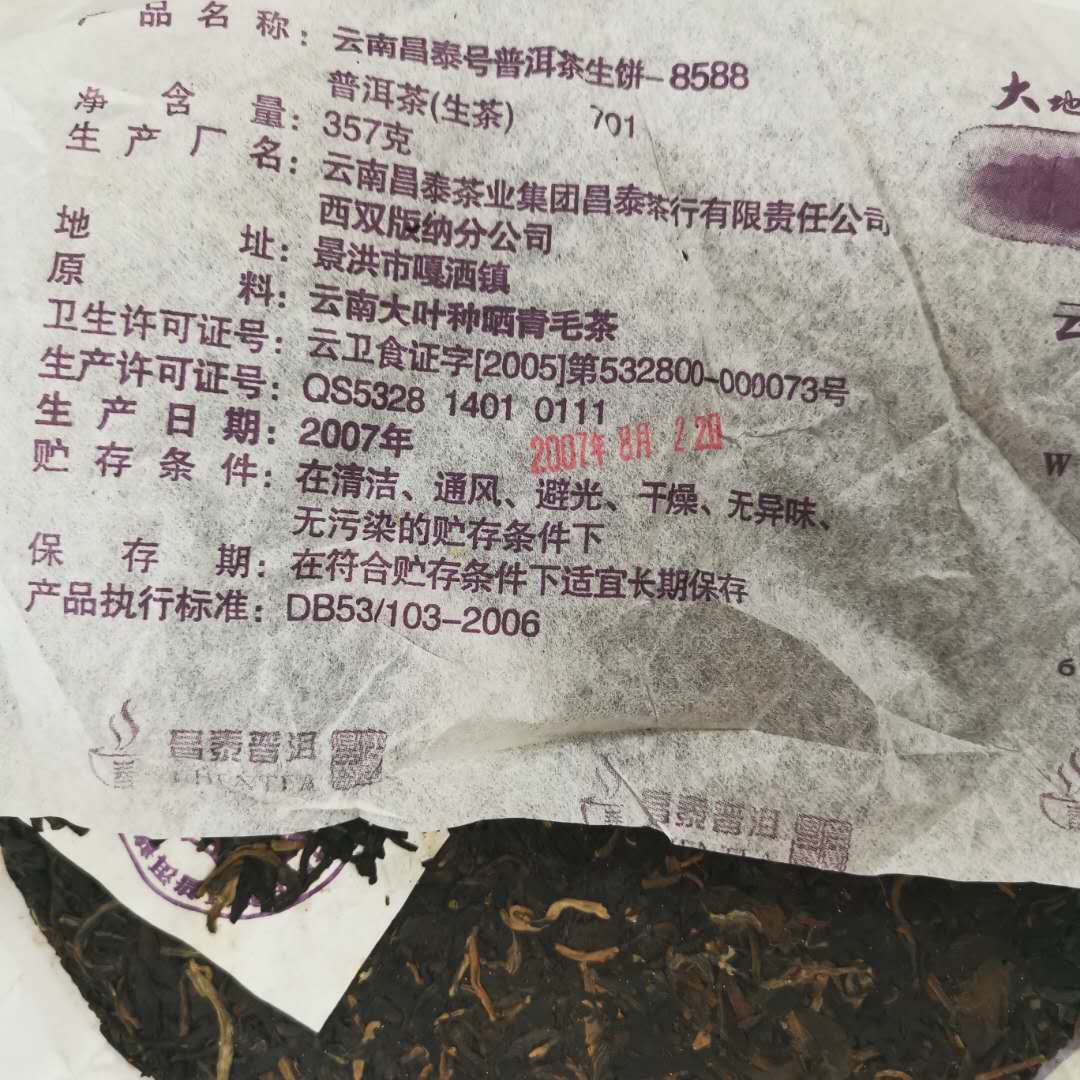 产品名称：云南昌泰号普洱茶生饼-8588
普洱茶(生茶) 701
净含量：357克
生产厂名：云南昌泰茶业集团昌泰茶行有限责任公司
西双版纳分公司
地址：景洪市嘎洒镇
原料：云南大叶种晒青毛茶
卫生许可证号：云卫食证字[2005]第532800-000073号
生产许可证号：QS5328 1401 0111
生产日期：2007年 2007年 8月 2 2日
贮存条件：在清洁、通风、避光、干燥、无异味、
无污染的贮存条件下
保存期：在符合贮存条件下适宜长期保存
产品执行标准：DB53/103-2006
大地
云
W
6
昌泰普洱
昌泰普洱